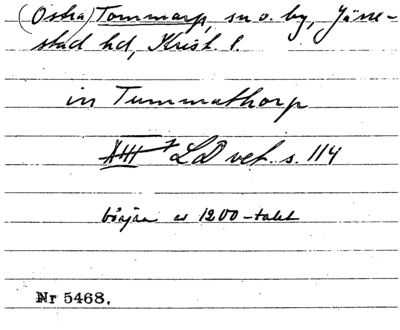 (Östra) Tommarp, sn o. by, Järre-
stad hd, Krist. l.
in Tummathorp
XIII LD vet. s. 114
början av 1200-talet
Nr 5468.